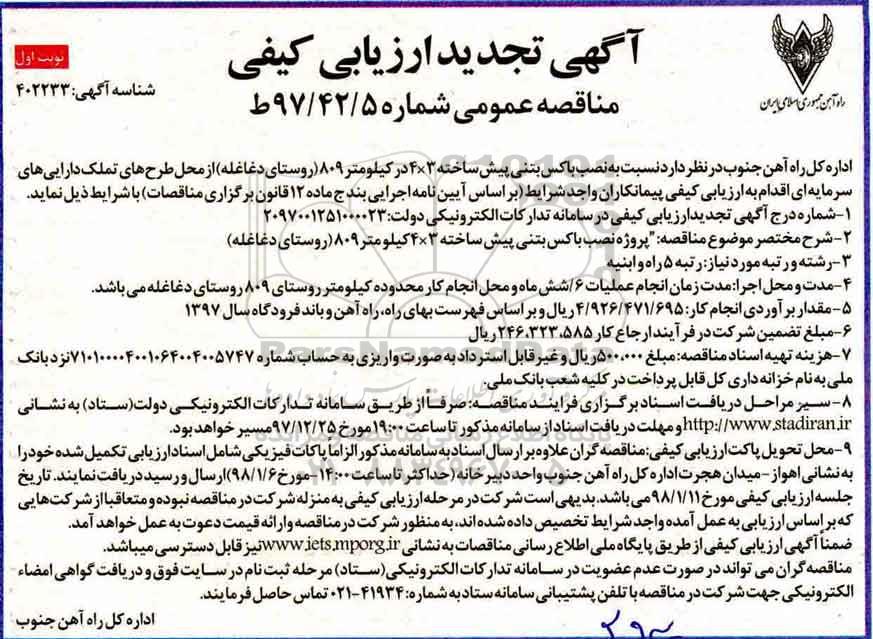 آگهی تجدید ارزیابی کیفی
نوبت اول
مناقصه عمومی شماره ۹۷/۴۲/۵ط
شناسه آگهی: ۴۰۲۲۳۳
راه آهن جمهوری اسلامی ایران
اداره کل راه آهن جنوب در نظر دارد نسبت به نصب باکس بتنی پیش ساخته ۳×۴ در کیلومتر ۸۰۹ (روستای دغاغله) از محل طرح های تملک دارایی های
سرمایه ای اقدام به ارزیابی کیفی پیمانکاران واجد شرایط (بر اساس آیین نامه اجرایی بند ج ماده ۱۲ قانون برگزاری مناقصات) با شرایط ذیل نماید.
۱-شماره درج آگهی تجدید ارزیابی کیفی در سامانه تدارکات الکترونیکی دولت: ۲۰۹۷۰۰۱۲۵۱۰۰۰۰۲۳
۲-شرح مختصر موضوع مناقصه: "پروژه نصب باکس بتنی پیش ساخته ۳×۴ کیلومتر ۸۰۹ (روستای دغاغله)
۳-رشته و رتبه مورد نیاز: رتبه ۵ راه و ابنیه
۴-مدت و محل اجرا: مدت زمان انجام عملیات ۶/شش ماه و محل انجام کار محدوده کیلومتر روستای ۸۰۹ روستای دغاغله می باشد.
۵-مقدار برآوردی انجام کار: ۴/۹۲۶/۴۷۱/۶۹۵ ریال و بر اساس فهرست بهای راه، راه آهن و باند فرودگاه سال ۱۳۹۷
۶-مبلغ تضمین شرکت در فرآیند ارجاع کار ۲۴۶.۳۲۳.۵۸۵ ریال
۷-هزینه تهیه اسناد مناقصه: مبلغ ۵۰۰.۰۰۰ ریال و غیر قابل استرداد به صورت واریزی به حساب شماره ۷۱۰۱۰۰۰۰۴۰۰۱۰۶۴۰۰۴۰۰۵۷۴۷ نزد بانک
ملی به نام خزانه داری کل قابل پرداخت در کلیه شعب بانک ملی.
۸-سیر مراحل دریافت اسناد برگزاری فرایند مناقصه: صرفاً از طریق سامانه تدارکات الکترونیکی دولت (ستاد) به نشانی
http://www.stadiran.ir و مهلت دریافت اسناد از سامانه مذکور تا ساعت ۱۹:۰۰ مورخ ۹۷/۱۲/۲۵ میسر خواهد بود.
۹-محل تحویل پاکت ارزیابی کیفی: مناقصه گران علاوه بر ارسال اسناد به سامانه مذکور الزاما پاکات فیزیکی شامل اسناد ارزیابی تکمیل شده خود را
به نشانی اهواز-میدان هجرت اداره کل راه آهن جنوب واحد دبیر خانه (حداکثر تا ساعت ۱۴:۰۰-مورخ ۹۸/۱/۶) ارسال و رسید دریافت نمایند. تاریخ
جلسه ارزیابی کیفی مورخ ۹۸/۱/۱۱ می باشد. بدیهی است شرکت در مرحله ارزیابی کیفی به منزله شرکت در مناقصه نبوده و متعاقبا از شرکت هایی
که بر اساس ارزیابی به عمل آمده واجد شرایط تخصیص داده شده اند، به منظور شرکت در مناقصه و ارائه قیمت دعوت به عمل خواهد آمد.
ضمناً آگهی ارزیابی کیفی از طریق پایگاه ملی اطلاع رسانی مناقصات به نشانی www.iets.mporg.ir نیز قابل دسترسی میباشد.
مناقصه گران می تواند در صورت عدم عضویت در سامانه تدارکات الکترونیکی (ستاد) مرحله ثبت نام در سایت فوق و دریافت گواهی امضاء
الکترونیکی جهت شرکت در مناقصه با تلفن پشتیبانی سامانه ستاد به شماره: ۴۱۹۳۴-۰۲۱ تماس حاصل فرمایند.
اداره کل راه آهن جنوب
ParsNamadData